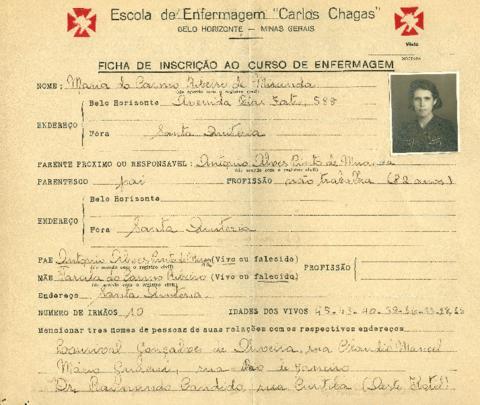 Escola de Enfermagem "Carlos Chagas"
BELO HORIZONTE — MINAS GERAIS
Visto
DIRETORA
FICHA DE INSCRIÇÃO AO CURSO DE ENFERMAGEM
NOME: Maria do Carmo Ribeiro de Miranda
(de acordo com o registro civil)
Belo Horizonte Avenida 588
ENDEREÇO
Fóra Santa Quiteria
PARENTE PROXIMO OU RESPONSÁVEL: Antonio Alves Pinto de Miranda
(de acordo com o registro civil)
PARENTESCO pai PROFISSÃO não trabalha (82 anos)
Belo Horizonte
ENDEREÇO
Fora Santa Quiteria
PAE Antonio Alves Pinto de (Vivo ou falecido)
(de acordo com o registro civil)
PROFISSÃO
MÃE do Carmo Ribeiro (Vivo ou falecida)
(de acordo com o registro civil)
Endereço Santa Quiteria
NUMERO DE IRMÃOS 10 IDADES DOS VIVOS 45-43-40-39-36-33-28-25
Mencionar tres nomes de pessoas de suas relações com os respectivos endereços
Lourival Gonçalves de Oliveira, rua Manoel
Mario rua Rio de Janeiro
Dr. Raimundo Candido, rua Curitiba (Oeste Hotel)